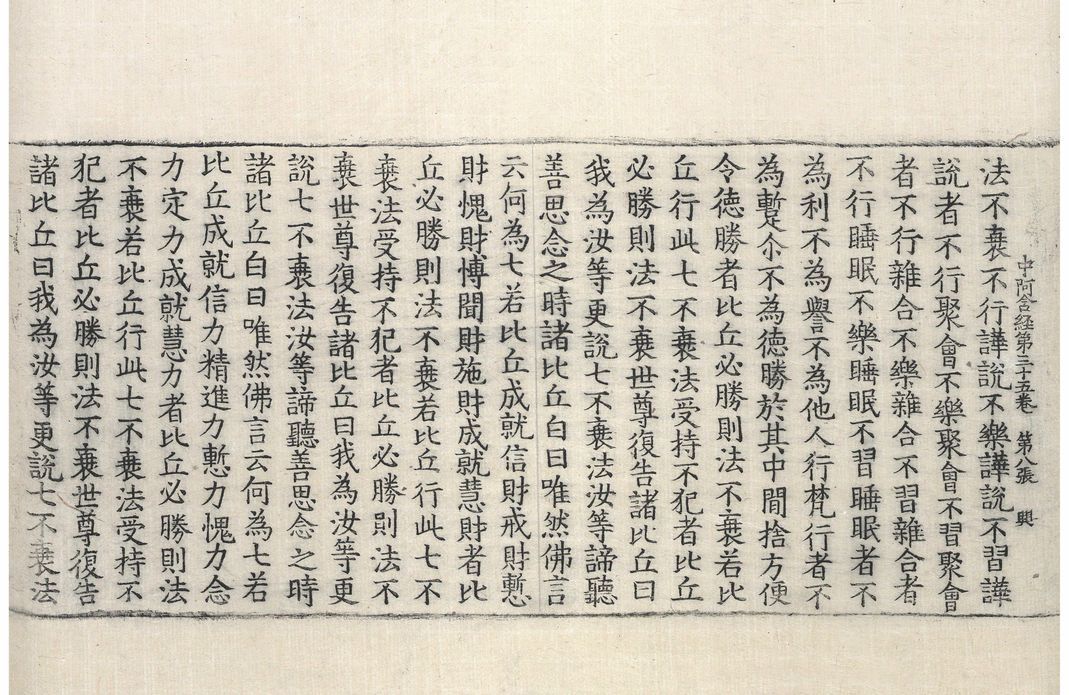 中阿含経第三十五巻 第八張 興
法不衰不行譁說不樂譁說不習譁
說者不行聚會不樂聚會不習聚會
者不行雜合不樂雜合不習雜合者
不行睡眠不樂睡眠不習睡眠者不
為利不為譽不為他人行梵行者不
為蹔尒不為德勝於其中間捨方便
令德勝者比丘必勝則法不衰若比
丘行此七不衰法受持不犯者比丘
必勝則法不衰世尊復告諸比丘曰
我為汝等更說七不衰法汝等諦聽
善思念之時諸比丘白曰唯然佛言
云何為七若比丘成就信財戒財慙
財愧財博聞財施財成就慧財者比
丘必勝則法不衰若比丘行此七不
衰法受持不犯者比丘必勝則法不
衰世尊復告諸比丘曰我為汝等更
說七不衰法汝等諦聽善思念之時
諸比丘白曰唯然佛言云何為七若
比丘成就信力精進力慙力愧力念
力定力成就慧力者比丘必勝則法
不衰若比丘行此七不衰法受持不
犯者比丘必勝則法不衰世尊復告
諸比丘曰我為汝等更說七不衰法